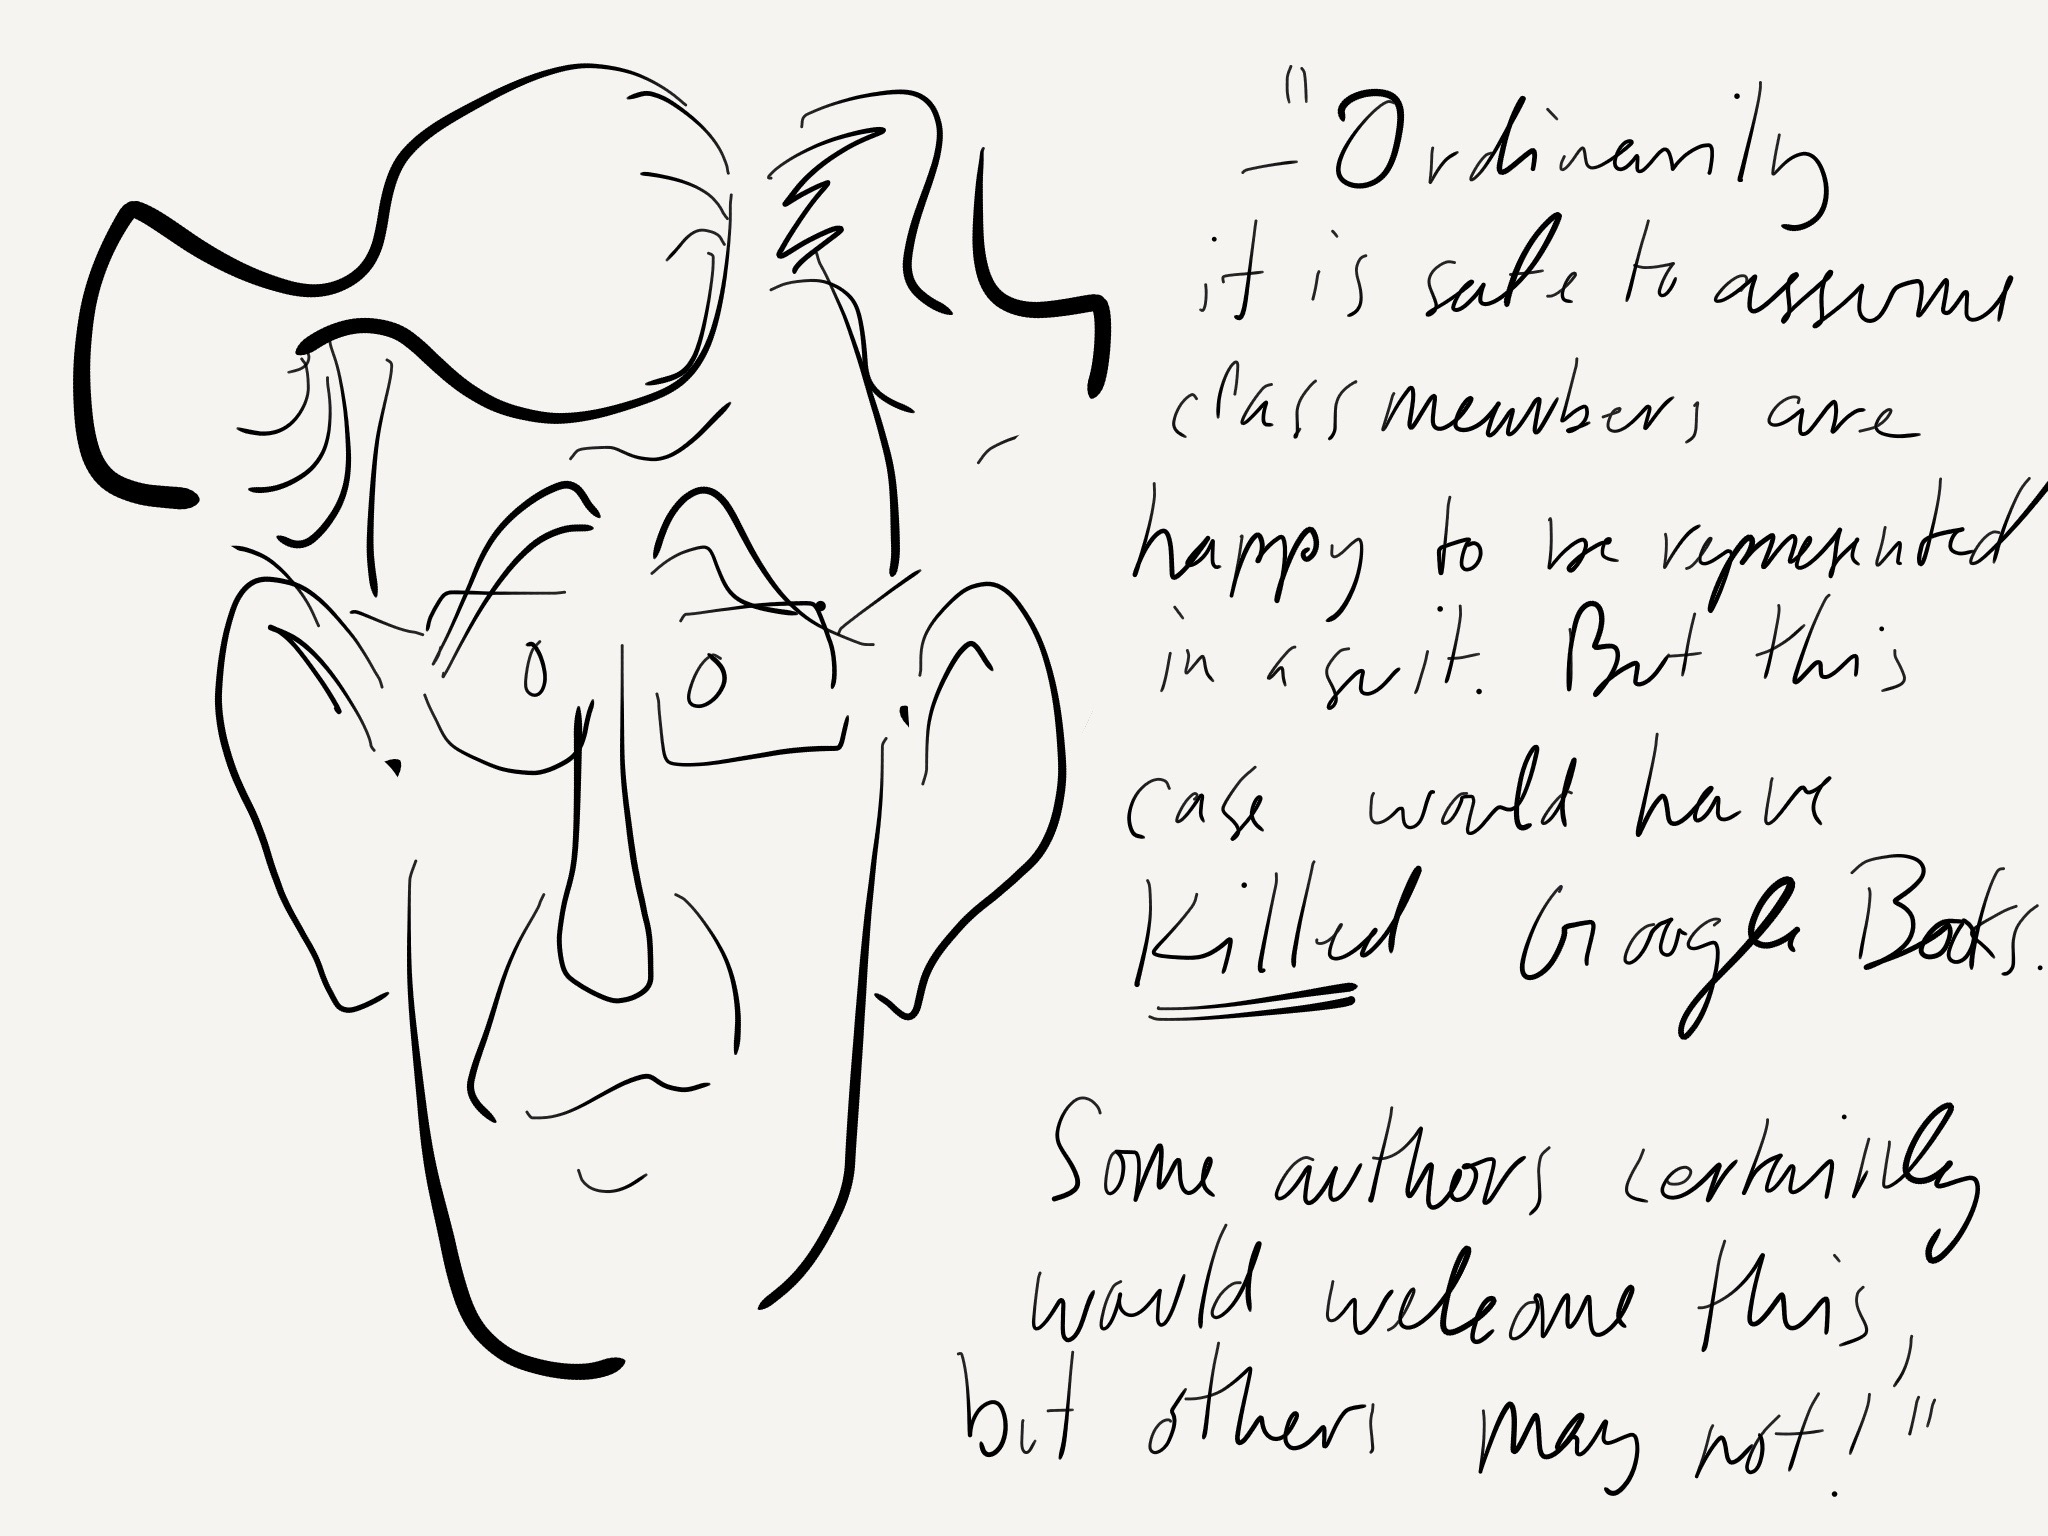 – "Ordinarily
it is safe to assume
class members are
happy to be represented
in a suit. But this
case would have
Killed Google Books.
Some authors certainly
would welcome this,
but others may not!"